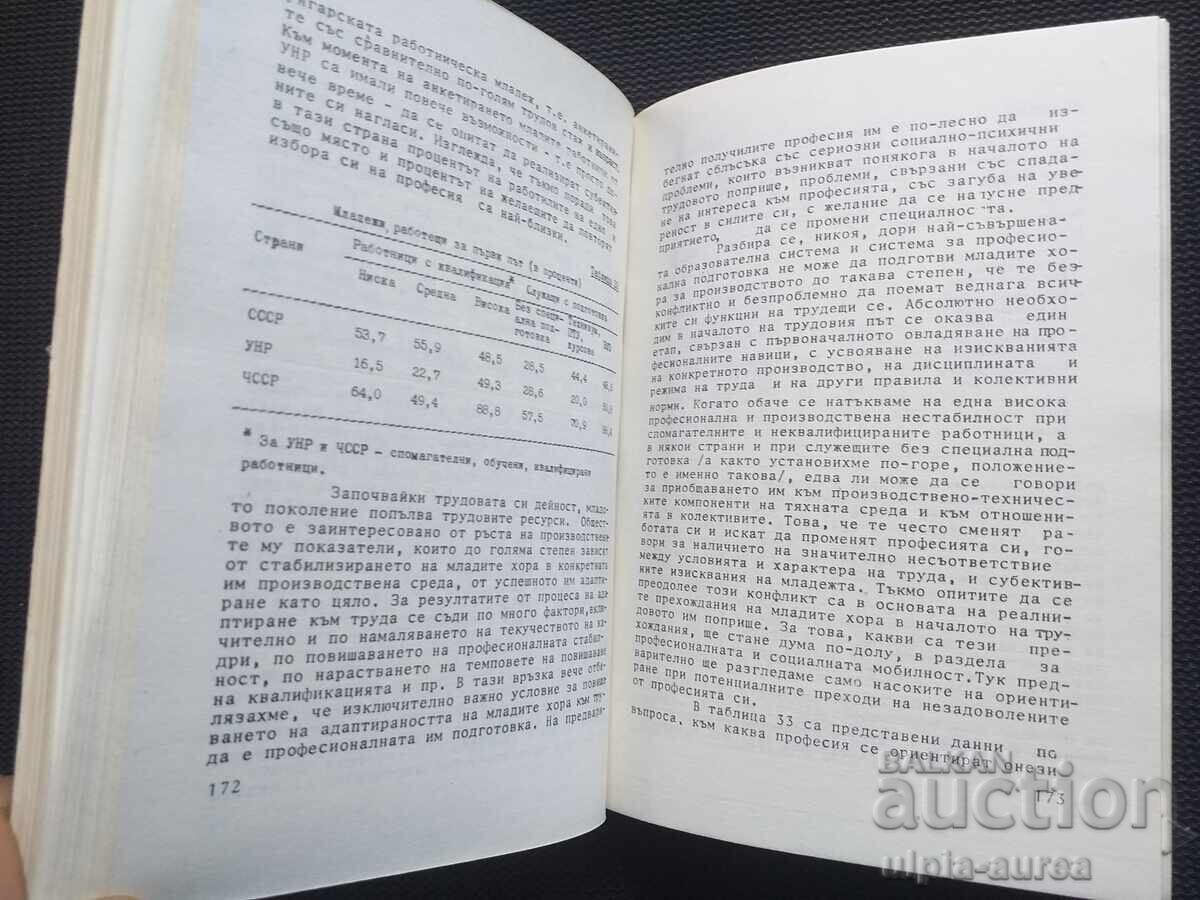 нгарската работническа младеж, т.е. анкетирани-
те със сравнително по-голям трудов стаж и възраст.
Към момента на анкетирането младите работници от
УНР са имали повече възможности - т.е. просто по-
вече време - да се опитат да реализират субектив-
ните си нагласи. Изглежда, че тъкмо поради това
в тази страна процентът на работилите на едно и
също място и процентът на желаещите да повторят
избора си на професия са най-близки.
Таблица
Младежи, работещи за първи път (в проценти)
Страни Работници с квалификация* Служащи с подготовка
Ниска Средна Висока Без специ- Техникум,
ална под- ПТУ, ВО
готовка курсове
СССР 53,7 55,9 48,5 28,5 44,4
УНР 16,5 22,7 49,3 28,6 20,0
ЧССР 64,0 49,4 88,8 57,5 70,9
* За УНР и ЧССР - спомагателни, обучени, квалифицирани
работници.
Започвайки трудовата си дейност, младо-
то поколение попълва трудовите ресурси. Общест-
вото е заинтересовано от ръста на производствени-
те му показатели, които до голяма степен зависят
от стабилизирането на младите хора в конкретната
им производствена среда, от успешното им адапти-
ране като цяло. За резултатите от процеса на ада-
птиране към труда се съди по много фактори,вклю-
чително и по намаляването на текучеството на ка-
дри, по повишаването на професионалната стабил-
ност, по нарастването на темповете на повишаване
на квалификацията и пр. В тази връзка вече отбе-
лязахме, че изключително важно условие за повиша-
ването на адаптираността на младите хора към тру-
да е професионалната им подготовка. На предвари-
172
телно получилите професия им е по-лесно да из-
бегнат сблъсъка със сериозни социално-психични
проблеми, които възникват понякога в началото на
трудовото поприще, проблеми, свързани със спада-
не на интереса към професията, със загуба на уве-
реност в силите си, с желание да се напусне пред-
приятието, да се промени специалността.
Разбира се, никоя, дори най-съвършена-
та образователна система и система за професио-
нална подготовка не може да подготви младите хо-
ра за производството до такава степен, че те без-
конфликтно и безпроблемно да поемат веднага всич-
ките си функции на трудещи се. Абсолютно необхо-
дим в началото на трудовия път се оказва един
етап, свързан с първоначалното овладяване на про-
фесионалните навици, с усвояване на изискванията
на конкретното производство, на дисциплината и
режима на труда и на други правила и колективни
норми. Когато обаче се натъкваме на една висока
професионална и производствена нестабилност при
спомагателните и неквалифицираните работници, а
в някои страни и при служещите без специална под-
готовка /а както установихме по-горе, положение-
то е именно такова/, едва ли може да се говори
за приобщаването им към производствено-техничес-
ките компоненти на тяхната среда и към отношени-
ята в колективите. Това, че те често сменят ра-
ботата си и искат да променят професията си, го-
вори за наличието на значително несъответствие
между условията и характера на труда, и субектив-
ните изисквания на младежта. Тъкмо опитите да се
преодолее този конфликт са в основата на реални-
те прехождания на младите хора в началото на тру-
довото им поприще. За това, какви са тези пре-
хождания, ще стане дума по-долу, в раздела за
професионалната и социалната мобилност.Тук пред-
варително ще разгледаме само насоките на ориенти-
ране при потенциалните преходи на незадоволените
от професията си.
В таблица 33 са представени данни по
въпроса, към каква професия се ориентират онези
173
BALKAN
auction
ulpia-aurea